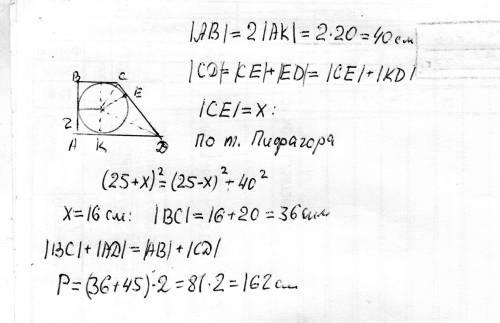 |AB| = 2|AK| = 2·20 = 40 см
|CD| = |CE| + |ED| = |CE| + |KD|
|CE| = X:
по т. Пифагора
B C E
2
A K D
(25+x)² = (25-x)² + 40²
x = 16 см: |BC| = 16 + 20 = 36 см
|BC| + |AD| = |AB| + |CD|
P = (36+45)·2 = 81·2 = 162 см